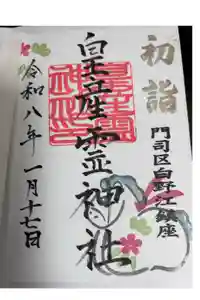 初詣
門司区白野江鎮座
皇産霊神社
令和八年一月十七日